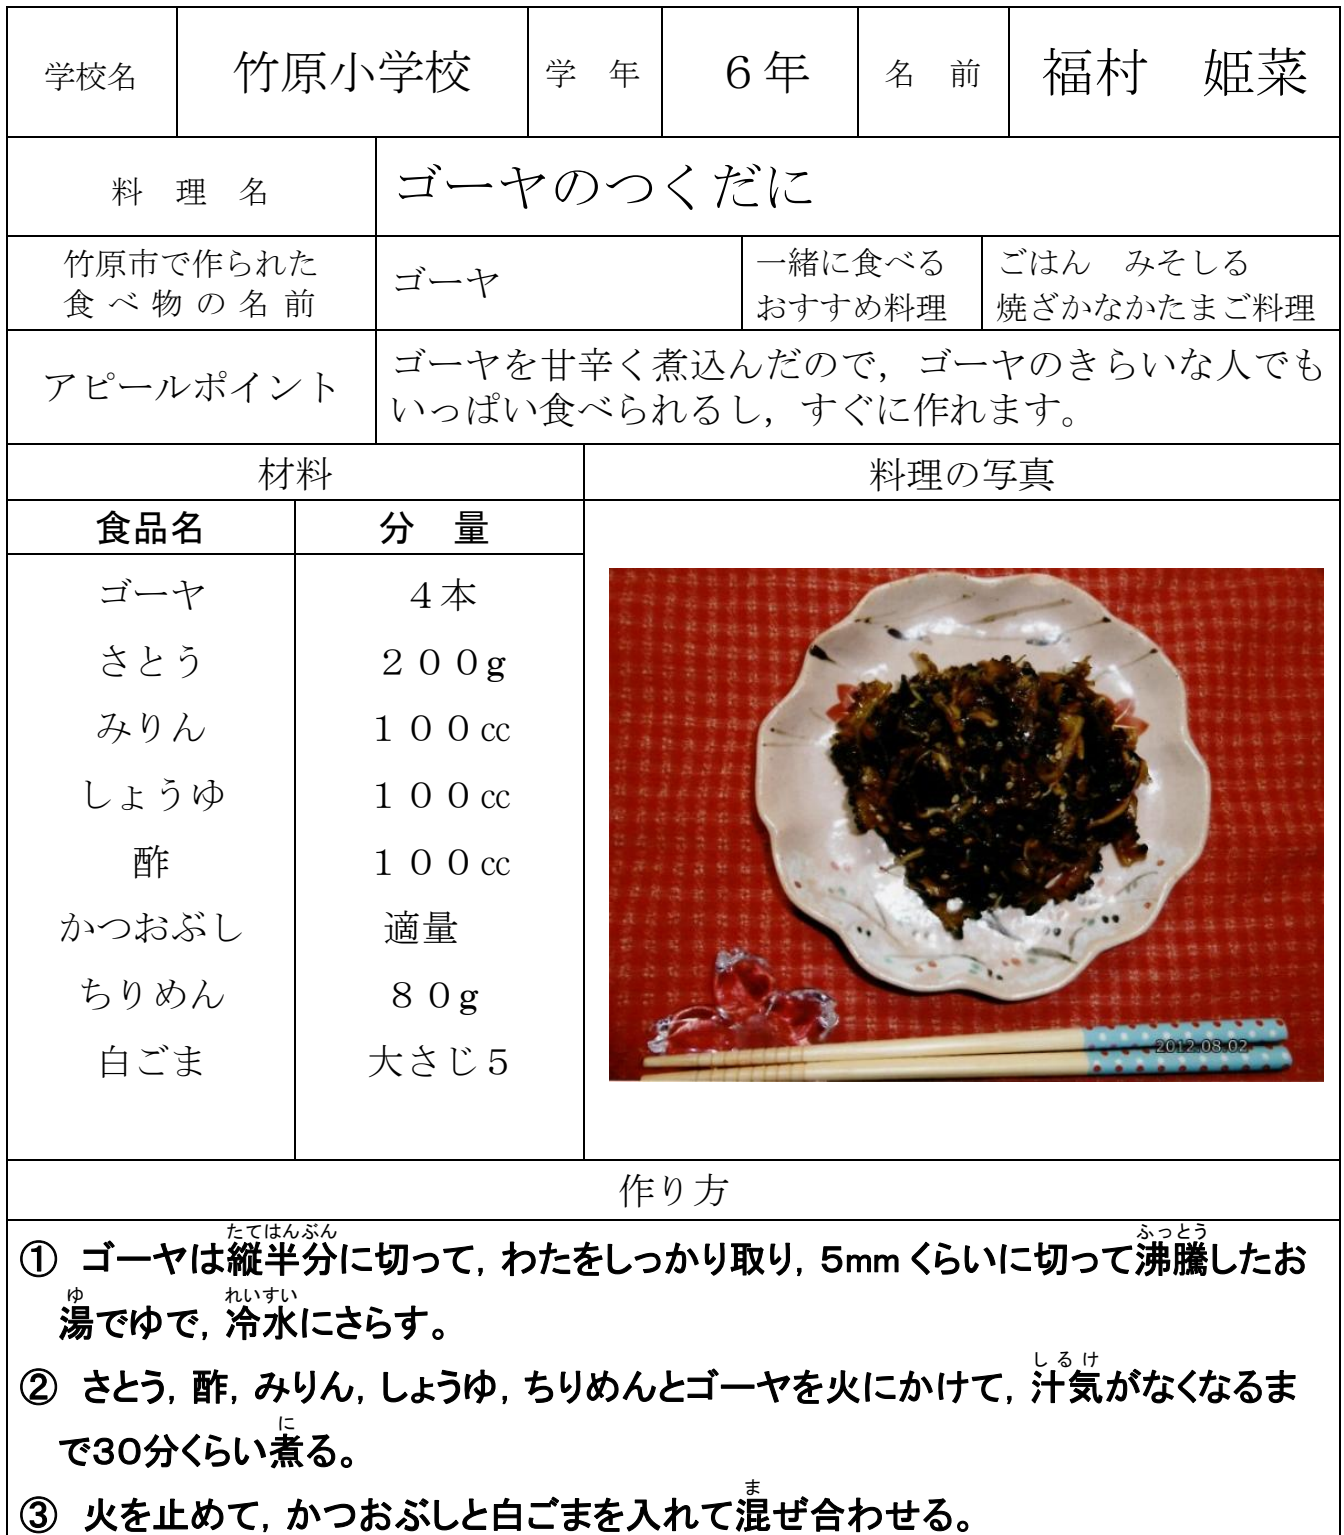 学校名 竹原小学校 学　年 ６年 名　前 福村　姫菜
料　理　名 ゴーヤのつくだに
竹原市で作られた
食べ物の名前
ゴーヤ
一緒に食べる
おすすめ料理
ごはん　みそしる
焼ざかなかたまご料理
アピールポイント
ゴーヤを甘辛く煮込んだので，ゴーヤのきらいな人でも
いっぱい食べられるし，すぐに作れます。
材料 料理の写真
食品名 分　量
ゴーヤ ４本
さとう ２００g
みりん １００㏄
しょうゆ １００㏄
酢 １００㏄
かつおぶし 適量
ちりめん ８０g
白ごま 大さじ５
2012.08.02
作り方
たてはんぶん ふっとう
① ゴーヤは縦半分に切って，わたをしっかり取り，５mmくらいに切って沸騰したお
ゆ れいすい
湯でゆで，冷水にさらす。
しるけ
② さとう，酢，みりん，しょうゆ，ちりめんとゴーヤを火にかけて，汁気がなくなるま
に
で３０分くらい煮る。
ま
③ 火を止めて，かつおぶしと白ごまを入れて混ぜ合わせる。